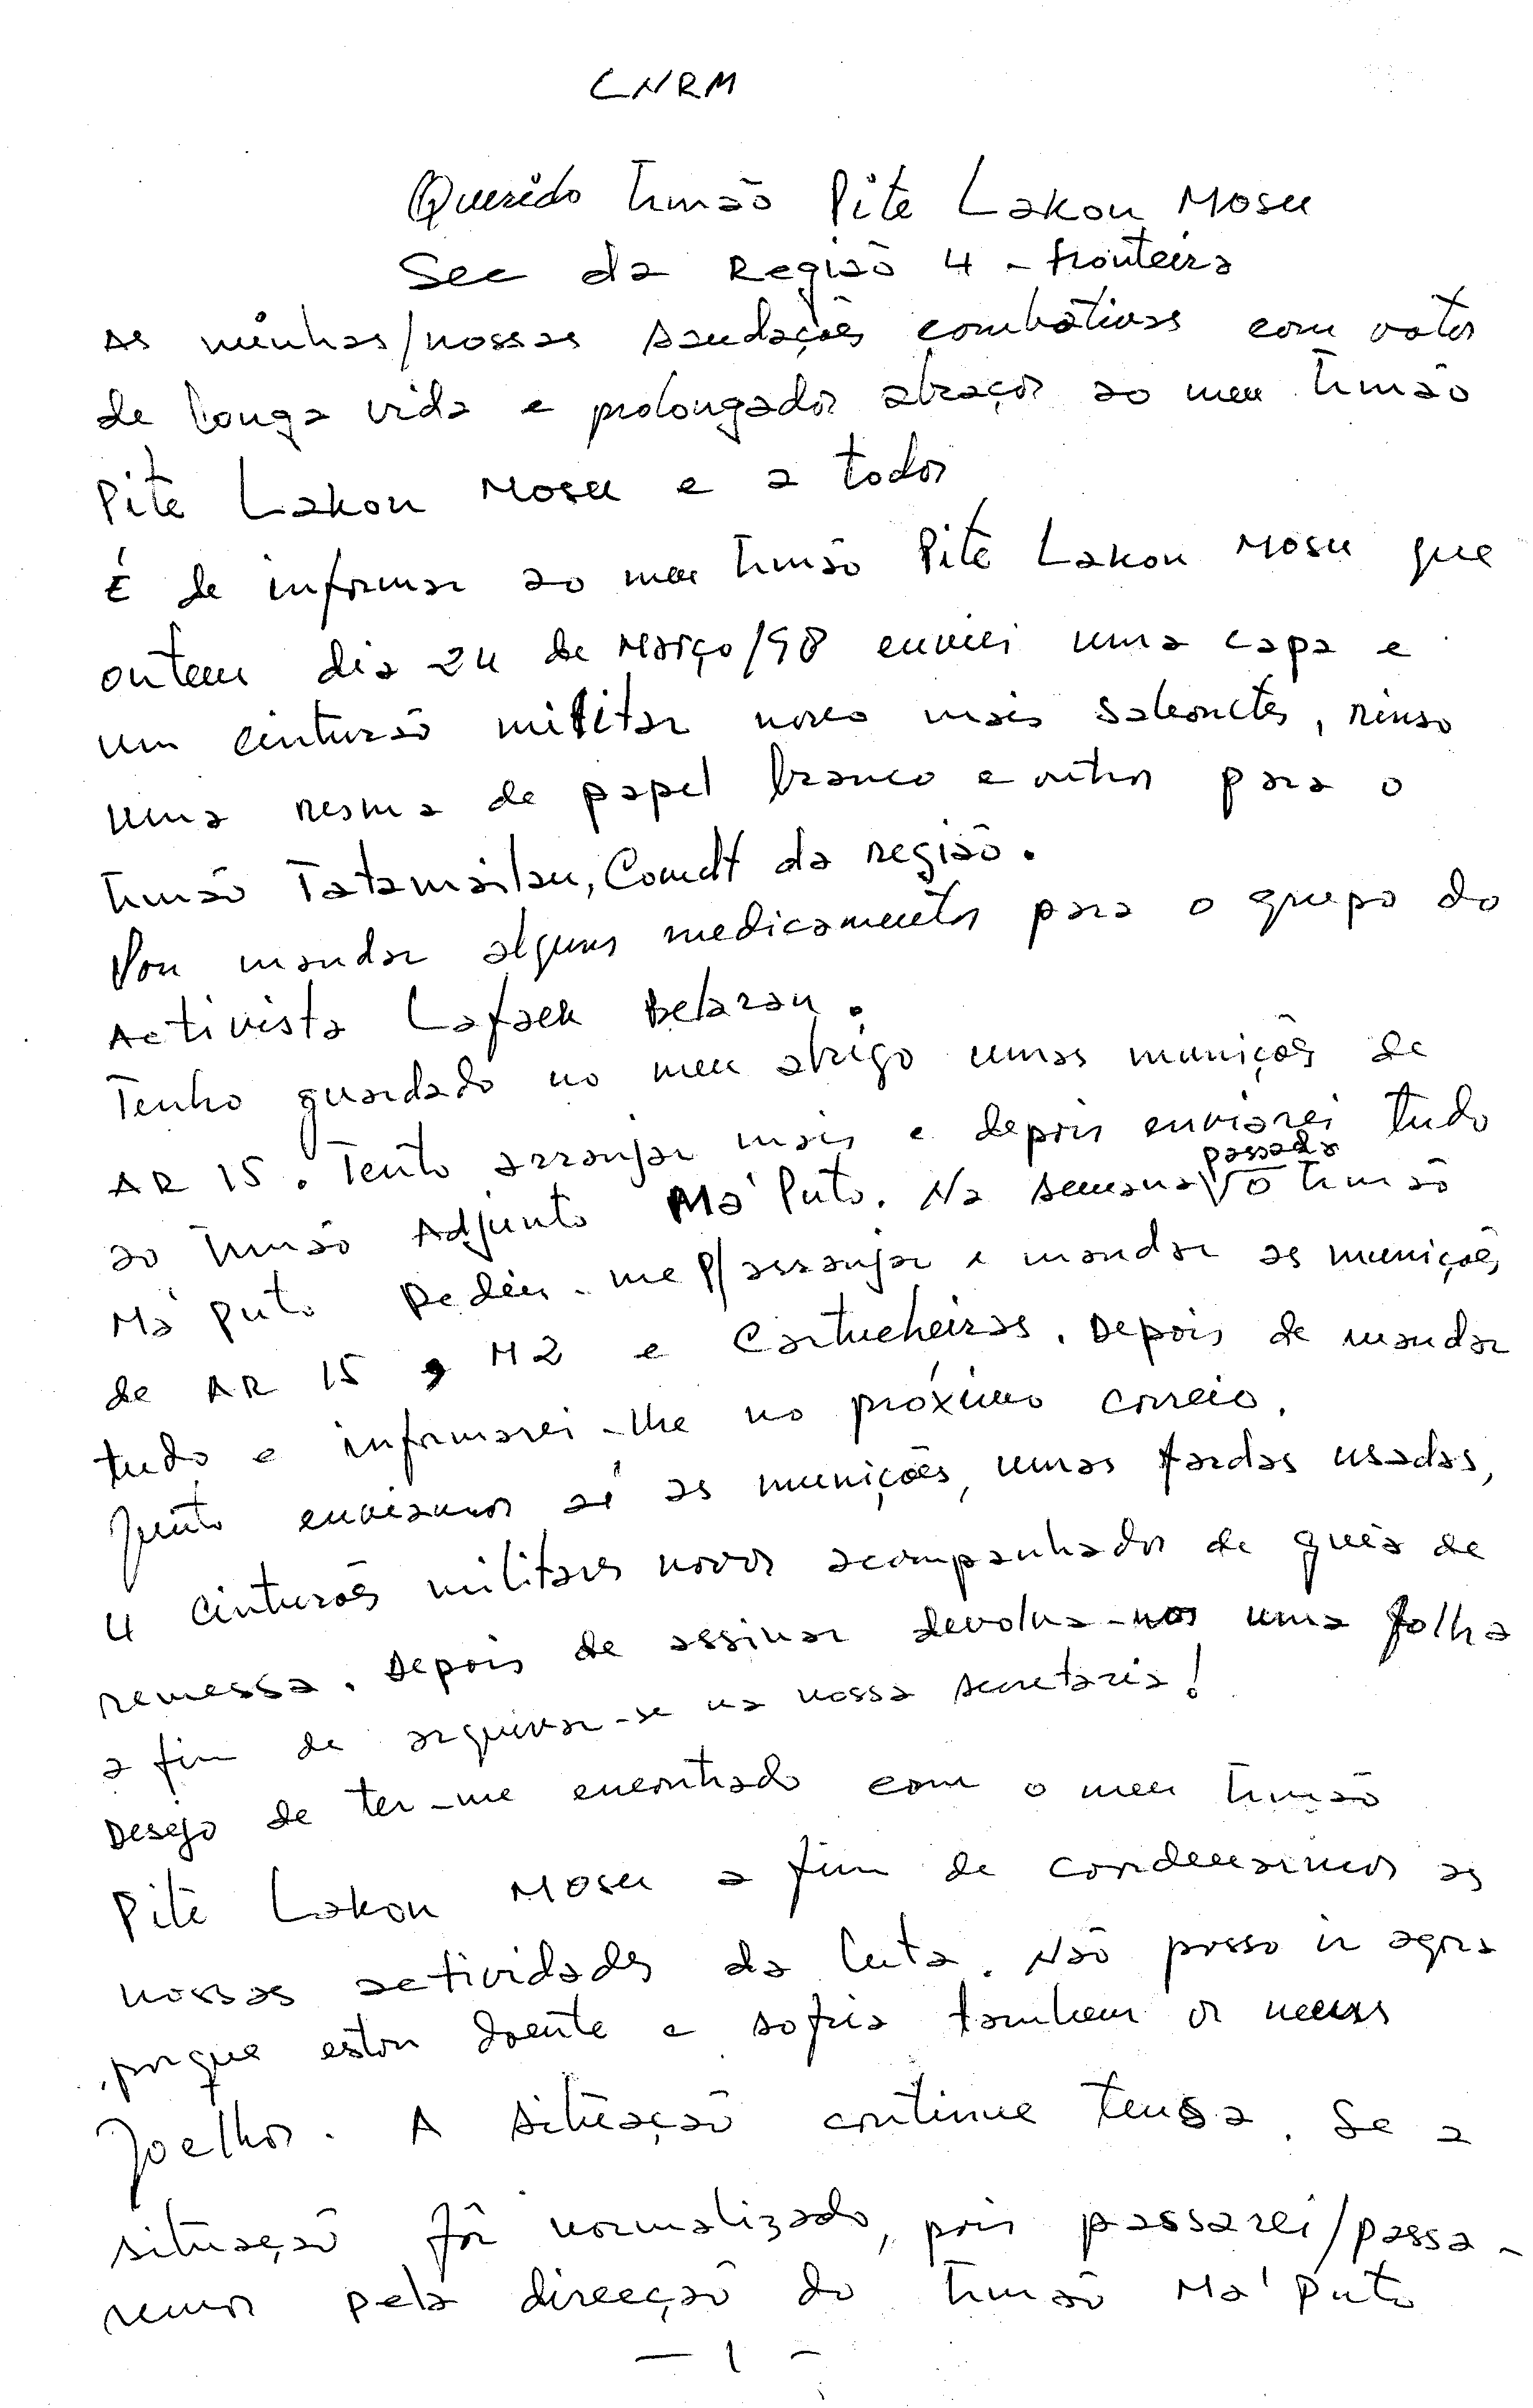 CNRM
Querido Irmão Pite Lakon Mosu
Sec da Região 4 - fronteira
As minhas/nossas saudações combativas com votos
de longa vida e prolongados abraços ao meu Irmão
Pite Lakon Mosu e a todos
É de informar ao meu Irmão Pite Lakon Mosu que
ontem dia 24 de Março/98 enviei uma capa e
um cinturão militar novo mais sabonetes, rinso
uma resma de papel branco e outros para o
Irmão Tatamailau, Comdt da região.
Vou mandar alguns medicamentos para o grupo do
Activista Lafaek Belaran.
Tenho guardado no meu abrigo umas munições de
AR 15. Tento arranjar mais e depois enviarei tudo
ao Irmão Adjunto Ma' Puto. Na semana passada o Irmão
Ma' Puto pediu-me p/ arranjar e mandar as munições
de AR 15, M2 e Cartucheiras. Depois de mandar
tudo e informarei-lhe no próximo correio.
Junto enviamos aí as munições, umas fardas usadas,
4 cinturões militares novos acompanhados de guia de
remessa. Depois de assinar devolva-nos uma folha
a fim de arquivar-se na nossa secretaria!
Desejo de ter-me encontrado com o meu Irmão
Pite Lakon Mosu a fim de cordenarmos as
nossas actividades da luta. Não posso ir agora
porque estou doente e sofria tambem os meus
Joelhos. A situação continue tensa. Se a
situação fôr normalizado, pois passarei/passa-
remos pela direcção do Irmão Ma' Puto
- 1 -